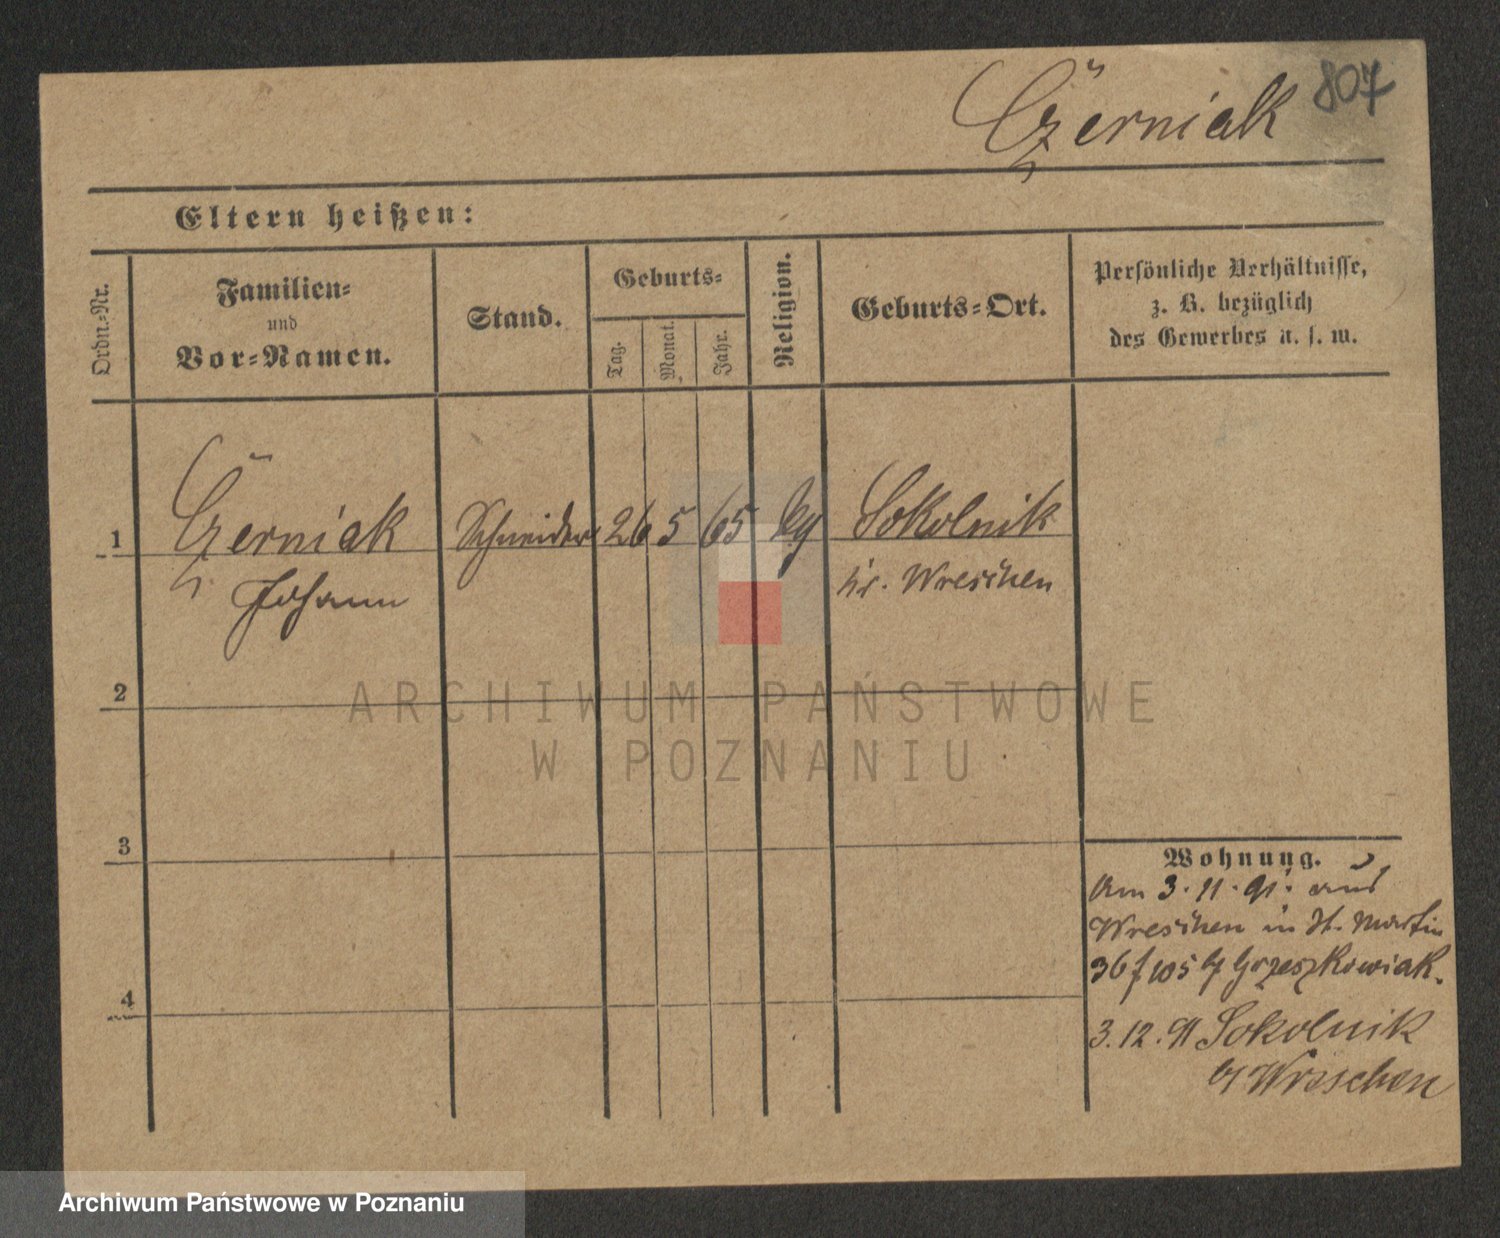 Czerniak 807
Eltern heißen:
Ordn.-Nr.
Familien-
und
Vor-Namen.
Stand.
Geburts-
Tag.
Monat.
Jahr.
Religion.
Geburts-Ort.
Persönliche Verhältnisse,
z. B. bezüglich
des Gewerbes u. s. w.
1 Czerniak Schneider 26 5 65 kg Sokolnik
Johann Kr. Wreschen
2
ARCHIWUM PAŃSTWOWE
W POZNANIU
3
4
Wohnung.
Am 3.11.91. aus
Wreschen in St. Martin
36 f 105 b/ Grzeszkowiak.
3.12.91 Sokolnik
b/ Wreschen
Archiwum Państwowe w Poznaniu